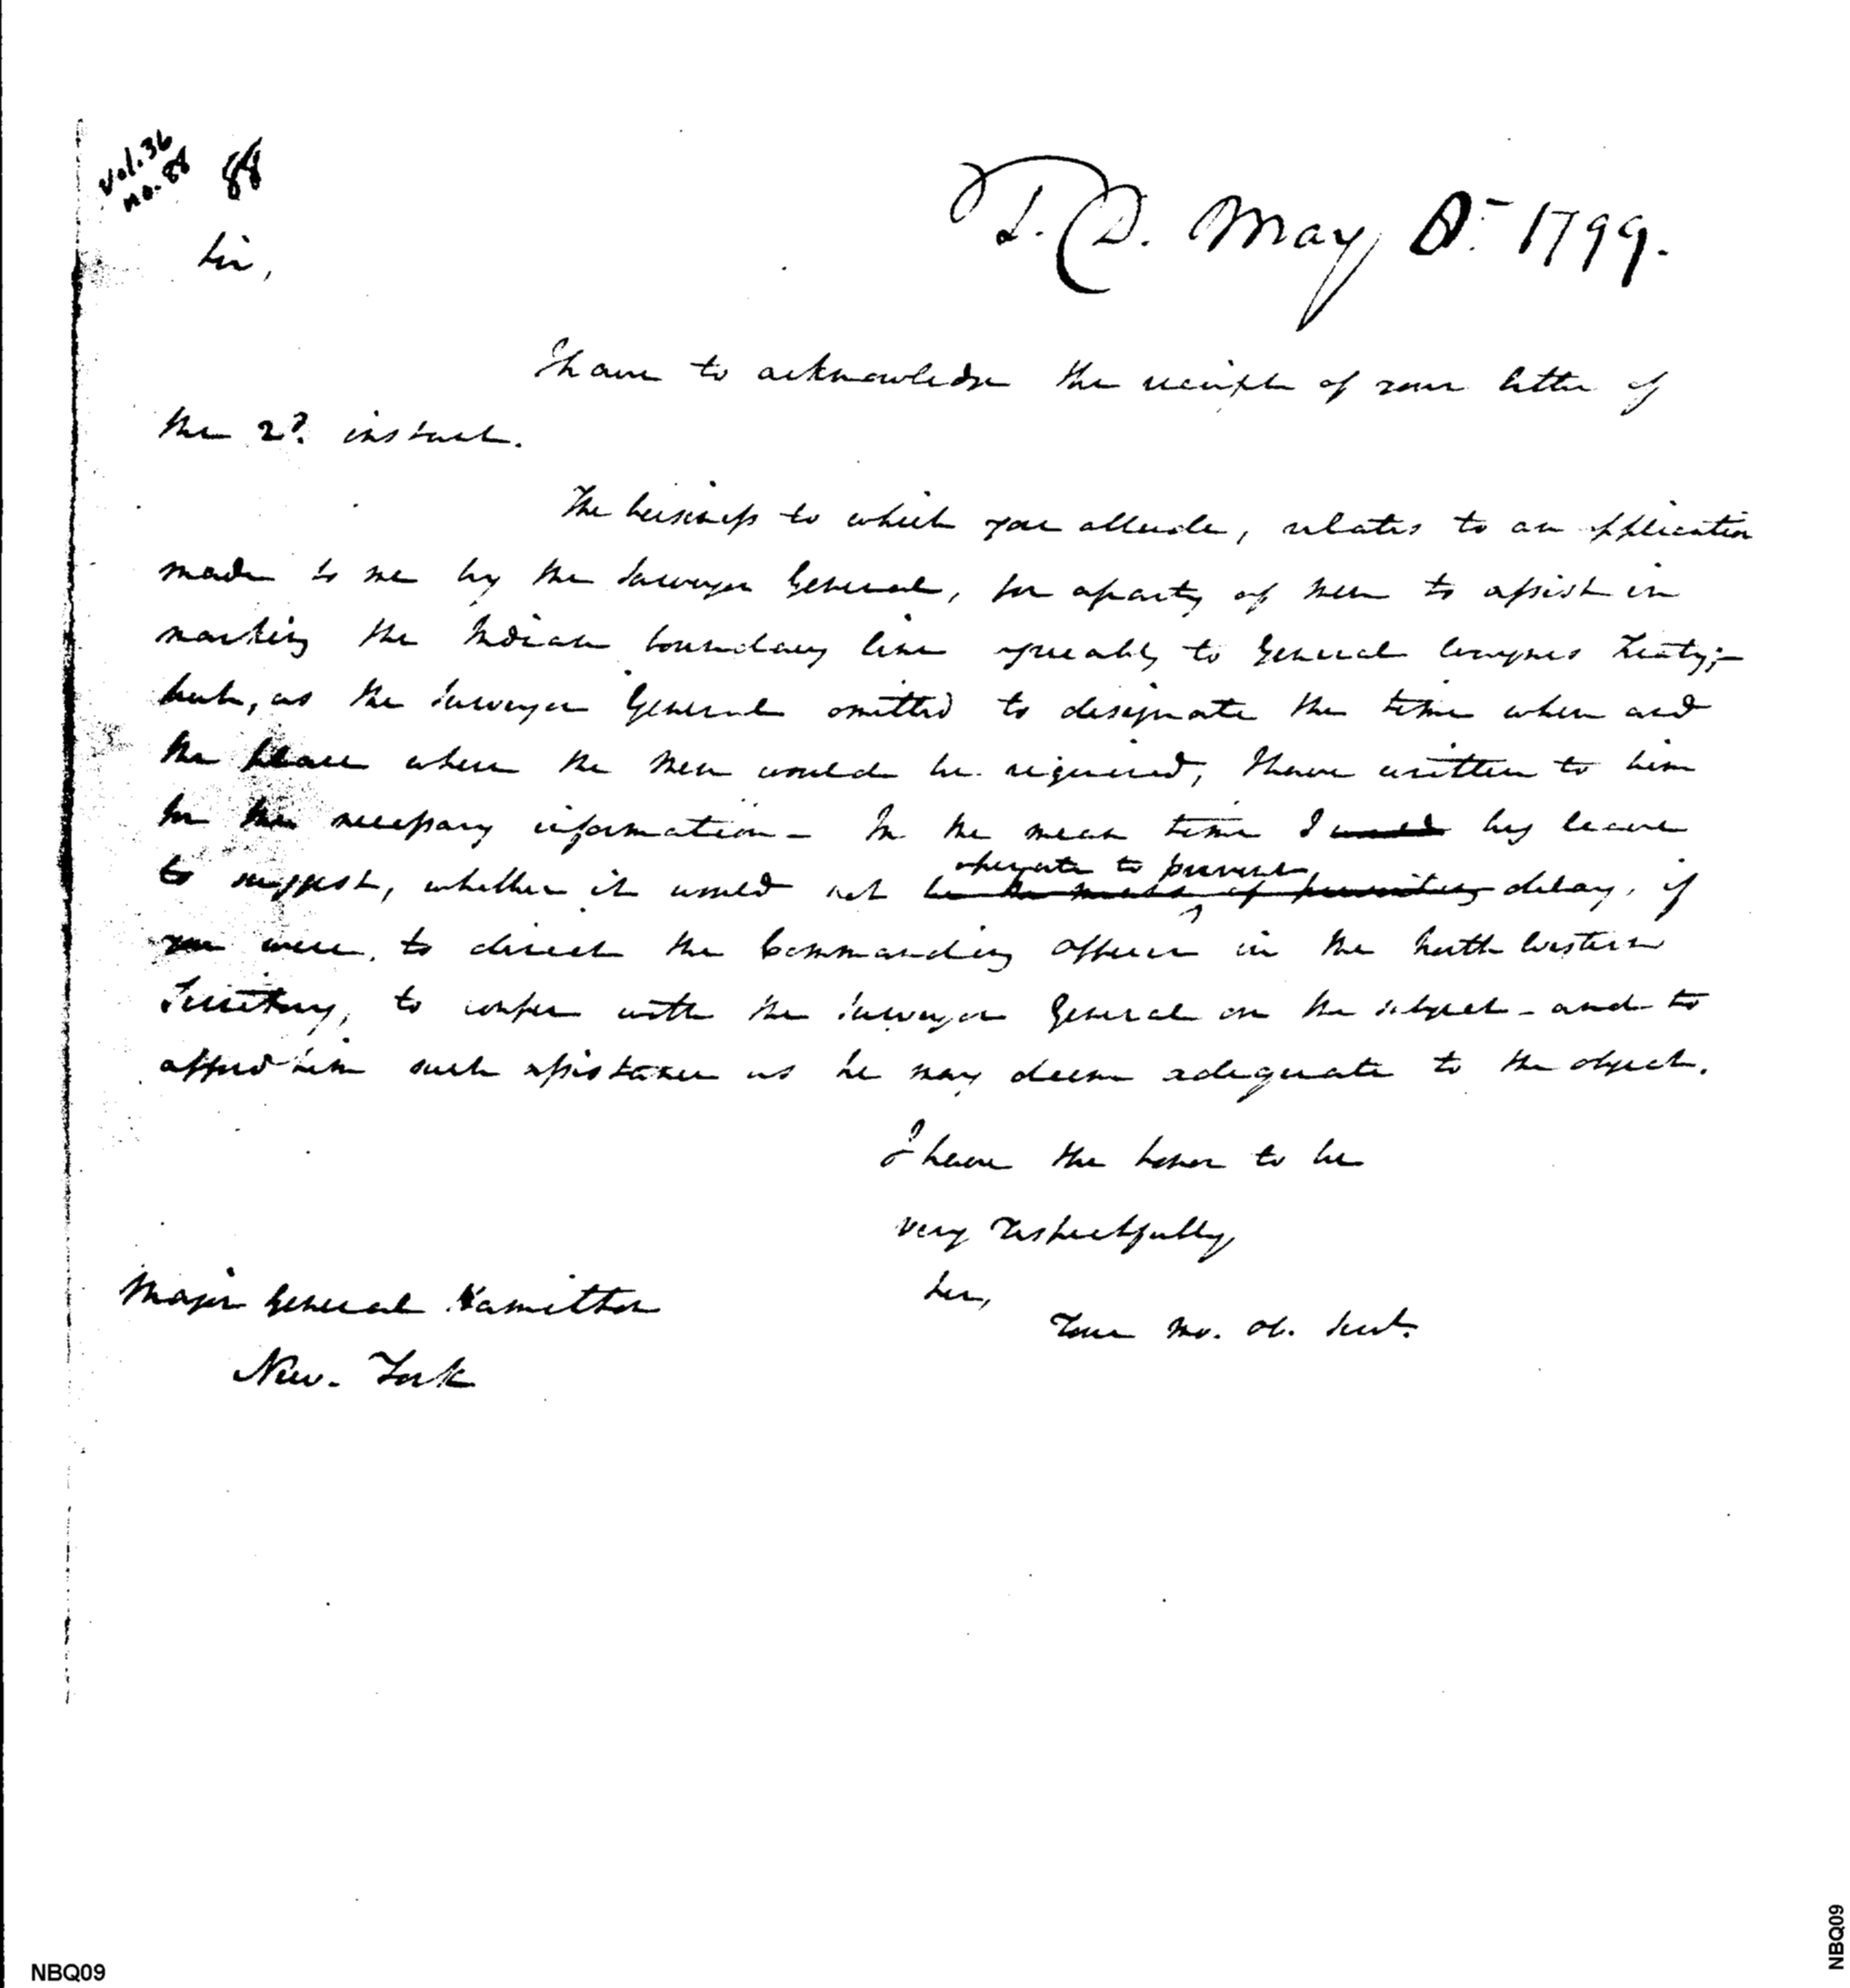 Vol. 36
no. 88
88
T. D. May 8th 1799.
Sir,
I have to acknowledge the receipt of your letter of
the 2d. instant.
The business to which you allude, relates to an application
made to me by the Surveyor General, for a party of men to assist in
marking the Indian boundary line agreeably to General Waynes Treaty;-
but, as the Surveyor General omitted to designate the time when and
the place where the men would be required, I have written to him
for the necessary information - In the mean time I would beg leave
to suggest, whether it would not be the means of preventing delay, if
operate to prevent
you were, to direct the Commanding Officer in the North Western
Territory, to confer with the Surveyor General on the subject - and to
afford him such assistance as he may deem adequate to the object.
I have the honor to be
very respectfully,
Sir,
Major General Hamilton
Your mo. ob. Servt.
New-York
NBQ09
NBQ09